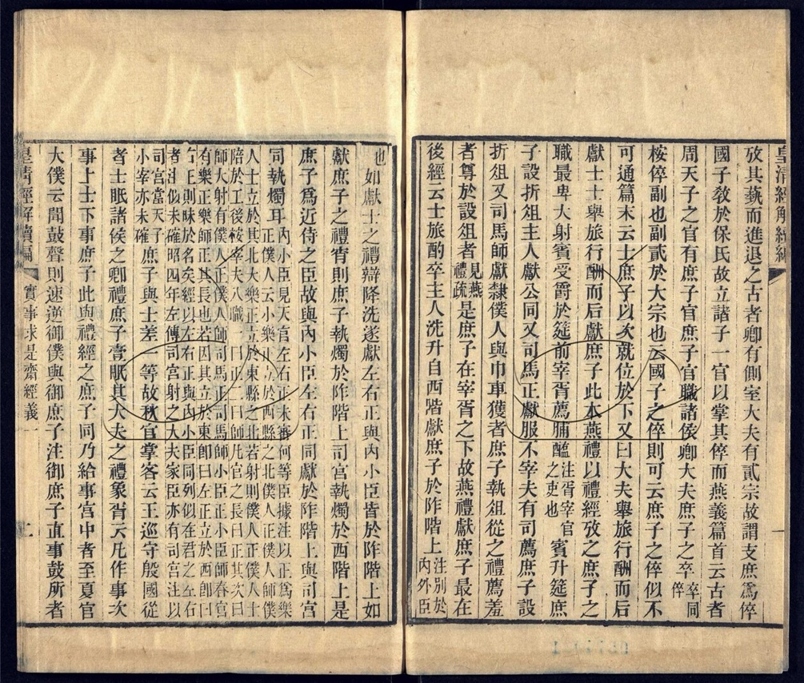 攷其蓺而進退之古者卿有側室大夫有貳宗故謂支庶爲倅
國子敎於保氏故立諸子一官以掌其倅而燕義篇首云古者
周天子之官有庶子官庶子官職諸侯卿大夫庶子之卒卒同倅
桉倅副也副貳於大宗也云國子之倅則可云庶子之倅似不
可通篇末云士庶子以次就位於下又曰大夫舉旅行酬而后
獻士士舉旅行酬而后獻庶子此本燕禮以禮經攷之庶子之
職最卑大射賓受爵於筵前宰胥薦脯醢注胥宰官之吏也賓升筵庶
子設折俎主人獻公同又司馬正獻服不宰夫有司薦庶子設
折俎又司馬師獻隸僕人與巾車獲者庶子執俎從之禮薦羞
者尊於設俎者見燕禮疏是庶子在宰胥之下故燕禮獻庶子最在
後經云士旅酌卒主人洗升自西階獻庶子於阼階上注別於內外臣
皇清經解續編
也如獻士之禮辯降洗遂獻左右正與內小臣皆於阼階上如
獻庶子之禮宵則庶子執燭於阼階上司宮執燭於西階上是
庶子爲近侍之臣故與內小臣左右正同獻於阼階上與司宮
司執燭耳內小臣見天官左右正未審何等臣據注以正爲樂
正僕人云小樂正立於西縣之北僕人正僕人師僕
人士立於其北大樂正立於東縣之北若射則僕人正僕人士
陪於工後桉宰夫八職一曰正二曰師凡官之長曰正其次曰
師大射有僕人正僕人師司馬正司馬師小臣正小臣師春官
有樂正樂師正其長也若因其立於東卽曰左正立於西卽曰
右正則昧於名矣經以左右正與內小臣同列似在君之左右
者注似未確昭四年左傳司宮射之大夫家臣亦有司宮注以
司宮當天子
小宰亦未確庶子與士差一等故秋官掌客云王巡守殷國從
者士眂諸侯之卿禮庶子壹眂其大夫之禮象胥云凡作事次
事上士下事庶子此與禮經之庶子同乃給事宮中者至夏官
大僕云聞鼓聲則速逆御僕與御庶子注御庶子直事鼓所者
皇清經解續編 實事求是齋經義一 二